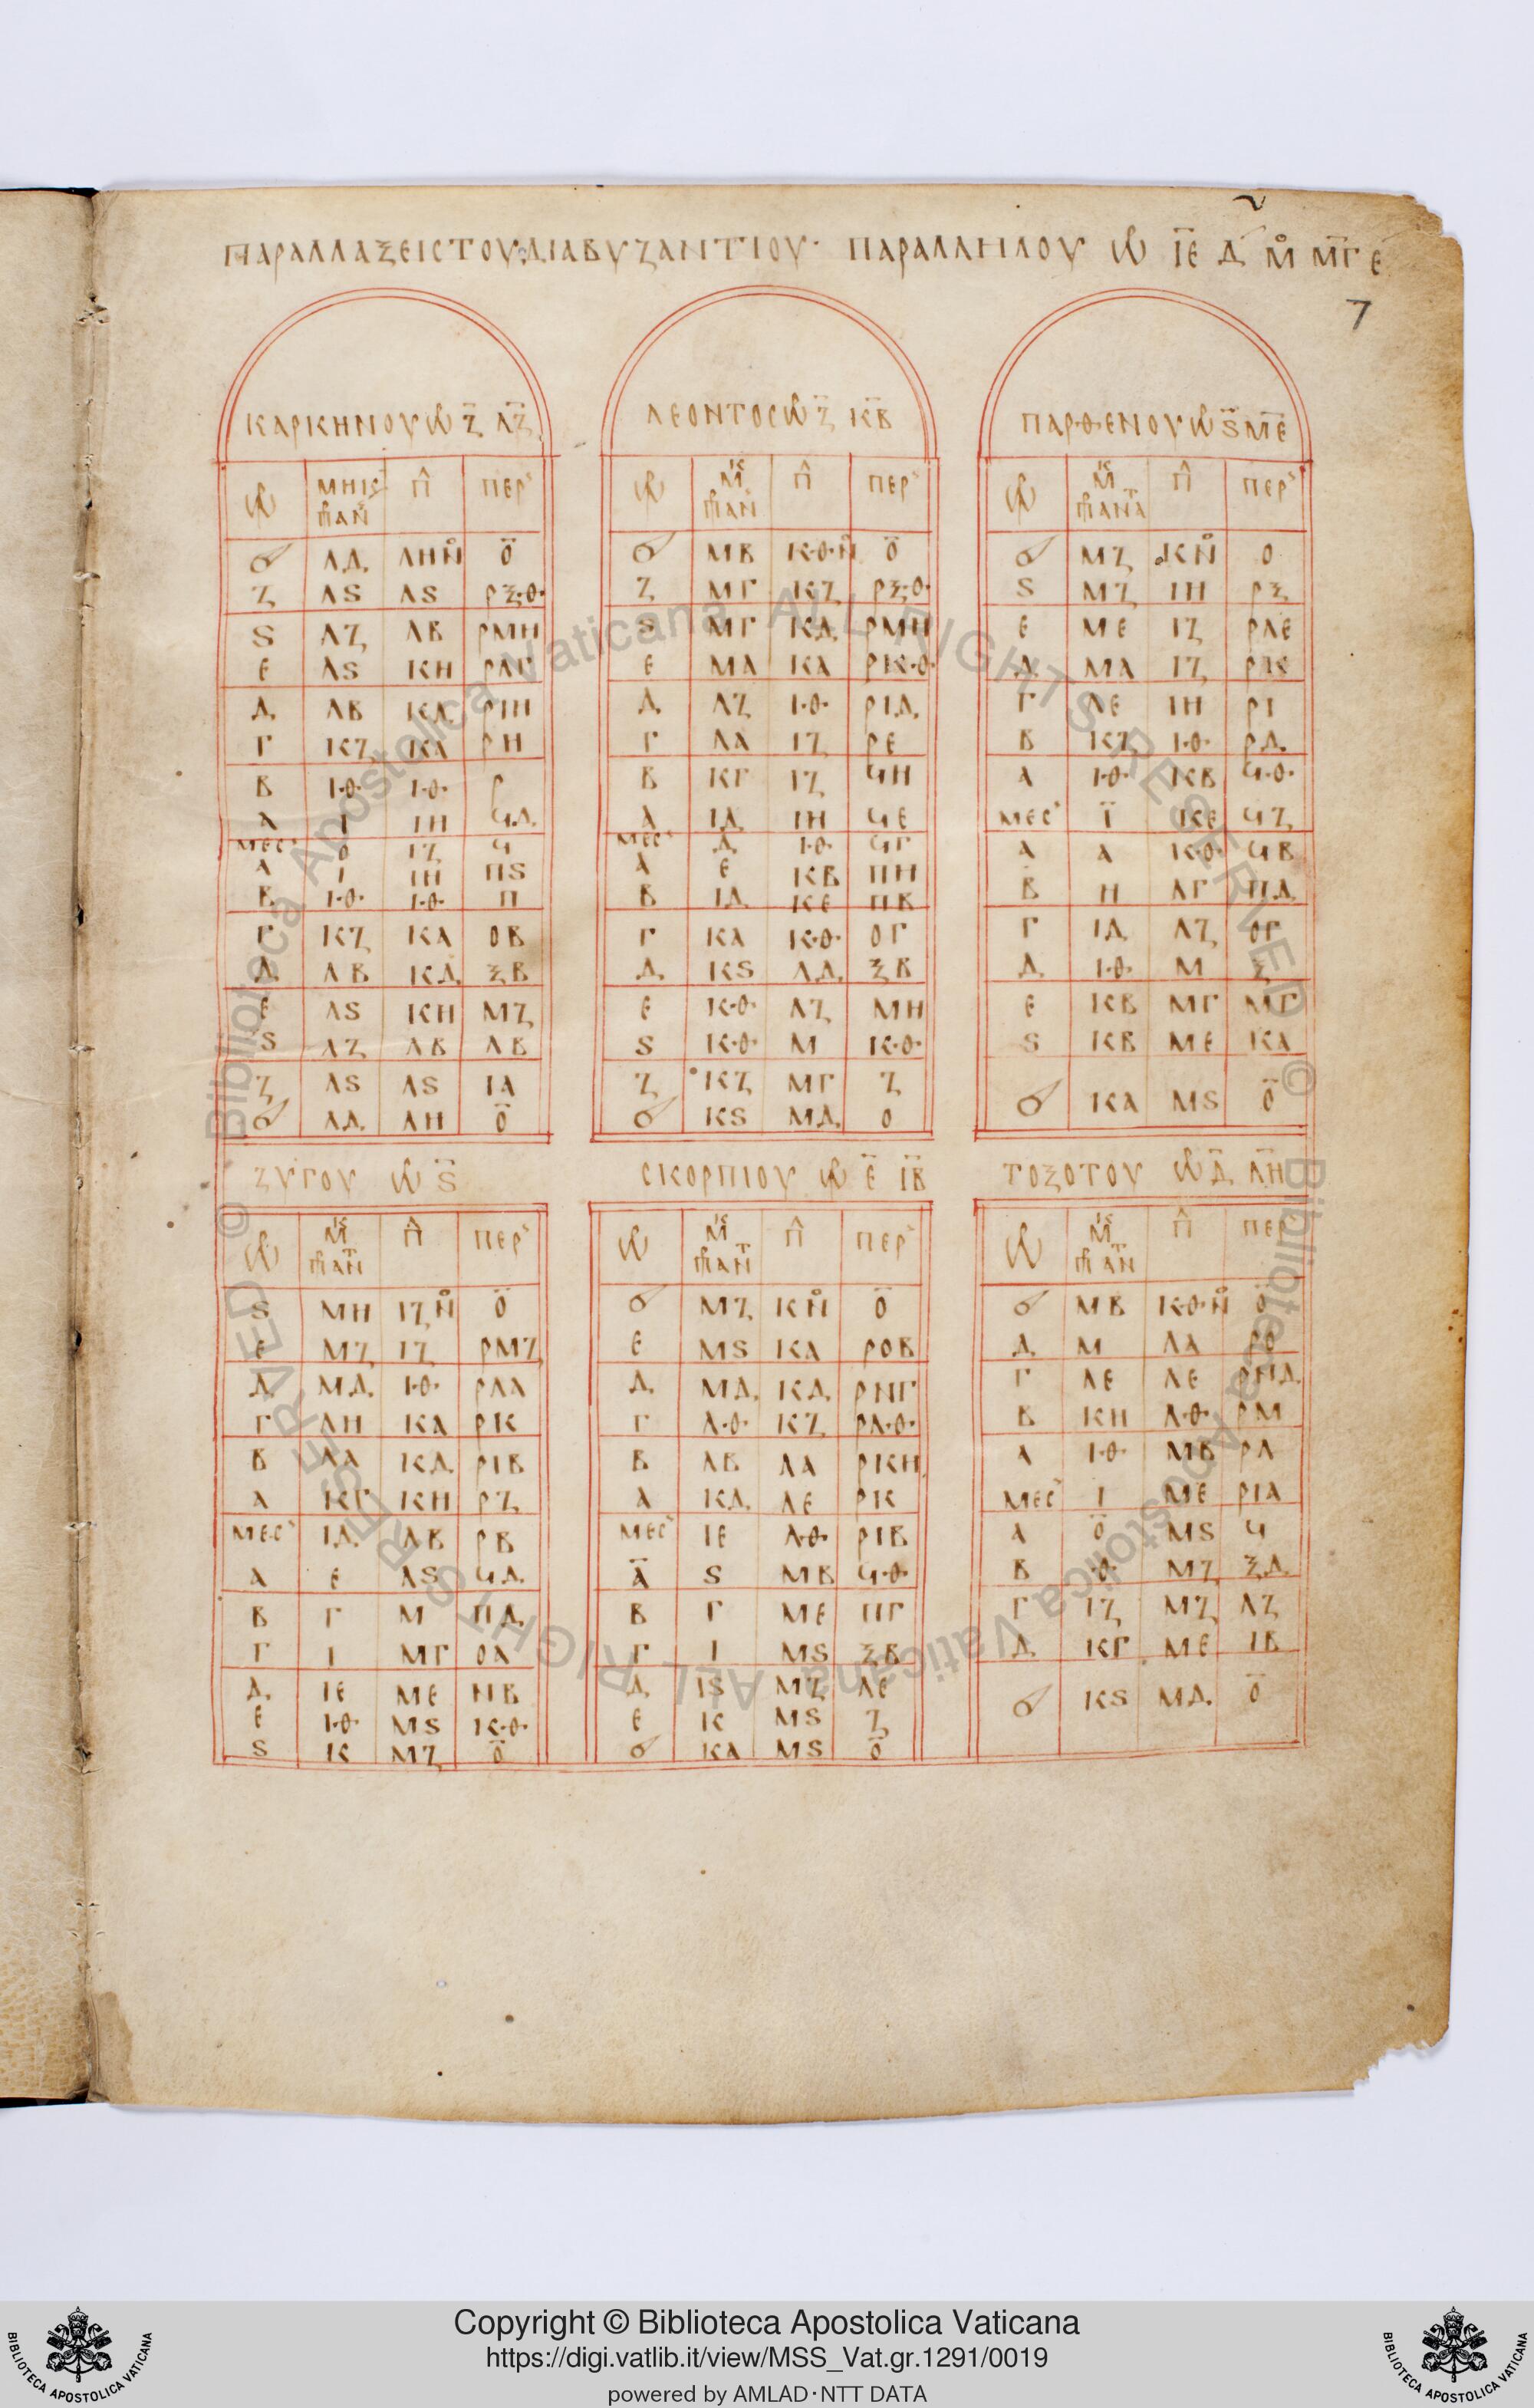 ΠΑΡΑΛΛΑΞΕΙΣ ΤΟΥ ΔΙΑ ΒΥΖΑΝΤΙΟΥ· ΠΑΡΑΛΛΗΛΟΥ Ѡ ΙΕ Δ Μ ΜΓ Ε
7
ΚΑΡΚΗΝΟΥ Ѡ Ζ ΛΖ
Ѡ ΜΗΙϚ ΠΑΝ Π ΠΕΡ
☌ ΛΔ ΛΗ Ν Ο
Ζ ΛϚ ΛϚ ΡΞΘ
Ϛ ΛΖ ΛΒ ΡΜΗ
Ε ΛϚ ΚΗ ΡΛΓ
Δ ΛΒ ΚΔ ΡΙΗ
Γ ΚΖ ΚΑ ΡΗ
Β ΙΘ ΙΘ Ρ
Α Ι ΙΗ ϞΔ
ΜΕϹ Ο ΙΖ Ϟ
Α Ι ΙΗ ΠϚ
Β ΙΘ ΙΘ Π
Γ ΚΖ ΚΑ ΟΒ
Δ ΛΒ ΚΔ ΞΒ
Ε ΛϚ ΚΗ ΜΖ
Ϛ ΛΖ ΛΒ ΛΒ
Ζ ΛϚ ΛϚ ΙΑ
☌ ΛΔ ΛΗ Ο
ΛΕΟΝΤΟϹ Ѡ Ζ ΚΒ
Ѡ Μ ΠΑΝ Π ΠΕΡ
☌ ΜΒ ΚΘ Ν Ο
Ζ ΜΓ ΚΖ ΡΞΘ
Ϛ ΜΓ ΚΔ ΡΜΗ
Ε ΜΑ ΚΑ ΡΚΘ
Δ ΛΖ ΙΘ ΡΙΔ
Γ ΛΑ ΙΖ ΡΕ
Β ΚΓ ΙΖ ϞΗ
Α ΙΔ ΙΗ ϞΕ
ΜΕϹ Δ ΙΘ ϞΓ
Α Ε ΚΒ ΠΗ
Β ΙΔ ΚΕ ΠΒ
Γ ΚΑ ΚΘ ΟΓ
Δ ΚϚ ΛΔ ΞΒ
Ε ΚΘ ΛΖ ΜΗ
Ϛ ΚΘ Μ ΚΘ
Ζ ΚΖ ΜΓ Ζ
☌ ΚϚ ΜΔ Ο
ΠΑΡΘΕΝΟΥ Ѡ Ϛ ΜΕ
Ѡ Μ ΠΑΝΑ Π ΠΕΡ
☌ ΜΖ Κ Ν Ο
Ϛ ΜΖ ΙΗ ΡΞ
Ε ΜΕ ΙΖ ΡΛΕ
Δ ΜΑ ΙΖ ΡΚ
Γ ΛΕ ΙΗ ΡΙ
Β ΚΖ ΙΘ ΡΔ
Α ΙΘ ΚΒ ϞΘ
ΜΕϹ Ι ΚΕ ϞΖ
Α Α ΚΘ ϞΒ
Β Η ΛΓ ΠΔ
Γ ΙΔ ΛΖ ΟΓ
Δ ΙΘ Μ Ξ
Ε ΚΒ ΜΓ ΜΓ
Ϛ ΚΒ ΜΕ ΚΑ
☌ ΚΑ ΜϚ Ο
ΖΥΓΟΥ Ѡ Ϛ
Ѡ Μ ΠΑΝ Π ΠΕΡ
Ϛ ΜΗ ΙΖ Ν Ο
Ε ΜΖ ΙΖ ΡΜΖ
Δ ΜΔ ΙΘ ΡΛΑ
Γ ΛΗ ΚΑ ΡΚ
Β ΛΑ ΚΔ ΡΙΒ
Α ΚΓ ΚΗ ΡΖ
ΜΕϹ ΙΔ ΛΒ ΡΒ
Α Ε ΛϚ ϞΔ
Β Γ Μ ΠΔ
Γ Ι ΜΓ ΟΑ
Δ ΙΕ ΜΕ ΝΒ
Ε ΙΘ ΜϚ ΚΘ
Ϛ Κ ΜΖ Ο
ϹΚΟΡΠΙΟΥ Ѡ Ε ΙΒ
Ѡ Μ ΠΑΝ Π ΠΕΡ
☌ ΜΖ Κ Ν Ο
Ε ΜϚ ΚΑ ΡΟΒ
Δ ΜΔ ΚΔ ΡΝΓ
Γ ΛΘ ΚΖ ΡΛΘ
Β ΛΒ ΛΑ ΡΚΗ
Α ΚΔ ΛΕ ΡΚ
ΜΕϹ ΙΕ ΛΘ ΡΙΒ
Α Ϛ ΜΒ ϞΘ
Β Γ ΜΕ ΠΓ
Γ Ι ΜϚ ΞΒ
Δ ΙϚ ΜΖ ΛΕ
Ε Κ ΜϚ Ζ
☌ ΚΑ ΜϚ Ο
ΤΟΞΟΤΟΥ Ѡ Δ ΛΗ
Ѡ Μ ΠΑΝ Π ΠΕΡ
☌ ΜΒ ΚΘ Ν Ο
Δ Μ ΛΑ ΡΟ
Γ ΛΕ ΛΕ ΡΝΔ
Β ΚΗ ΛΘ ΡΜ
Α ΙΘ ΜΒ ΡΛ
ΜΕϹ Ι ΜΕ ΡΙΑ
Α Ο ΜϚ Ϟ
Β Θ ΜΖ ΞΔ
Γ ΙΖ ΜΖ ΛΖ
Δ ΚΓ ΜΕ ΙΒ
☌ ΚϚ ΜΔ Ο
© Biblioteca Apostolica Vaticana ALL RIGHTS RESERVED
© Biblioteca Apostolica Vaticana ALL RIGHTS RESERVED
Copyright © Biblioteca Apostolica Vaticana
https://digi.vatlib.it/view/MSS_Vat.gr.1291/0019
powered by AMLAD·NTT DATA
BIBLIOTECA APOSTOLICA VATICANA
BIBLIOTECA APOSTOLICA VATICANA